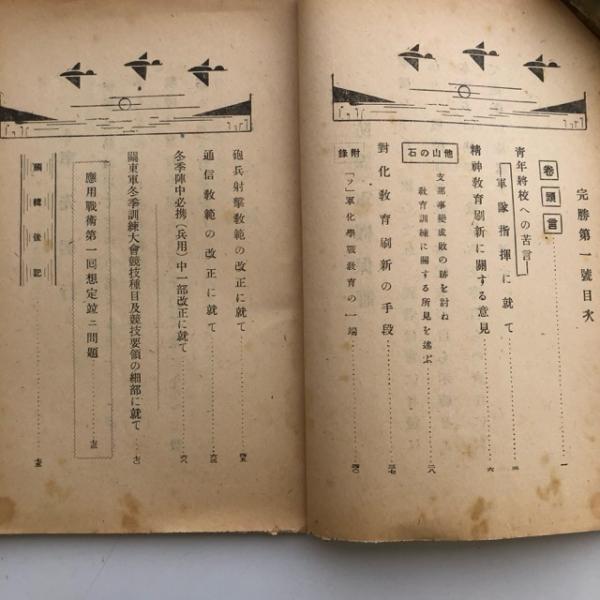 完勝第一號目次
卷頭言……一
青年將校への苦言
軍隊指揮に就て……
精神教育刷新に關する意見……六
他山の石
支那事變成敗の跡を討ね
教育訓練に關する所見を述ぶ……一八
對化教育刷新の手段……二七
附錄
「ソ」軍化學戰教育の一端……四〇
砲兵射撃教範の改正に就て……
通信教範の改正に就て……
冬季陣中必携(兵用)中一部改正に就て……六八
關東軍冬季訓練大會競技種目及競技要領の細部に就て……七〇
應用戰術第一回想定竝ニ問題……
編輯後記……